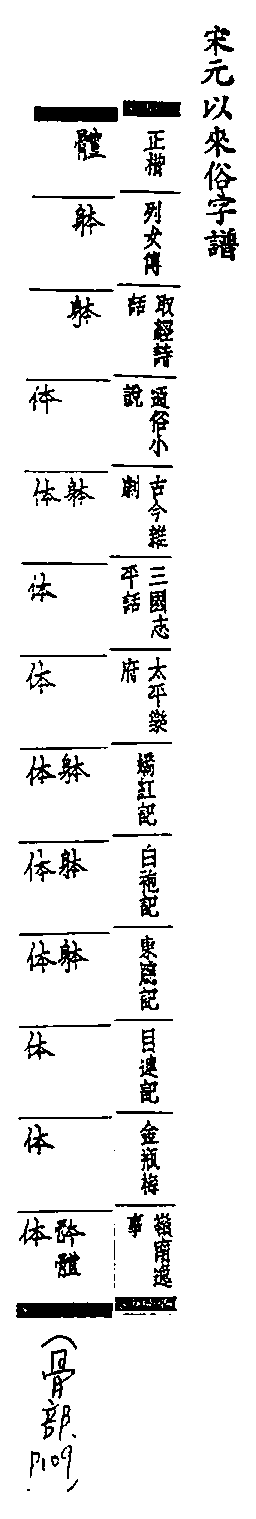 宋元以來俗字譜
正楷
體
列女傳
躰
取經詩話
躰
通俗小說
体
古今雜劇
躰体
三國志平話
体
太平樂府
体
嬌紅記
躰体
白袍記
躰体
東窻記
躰体
目連記
体
金瓶梅
体
嶺南逸事
体
(骨部
P109)